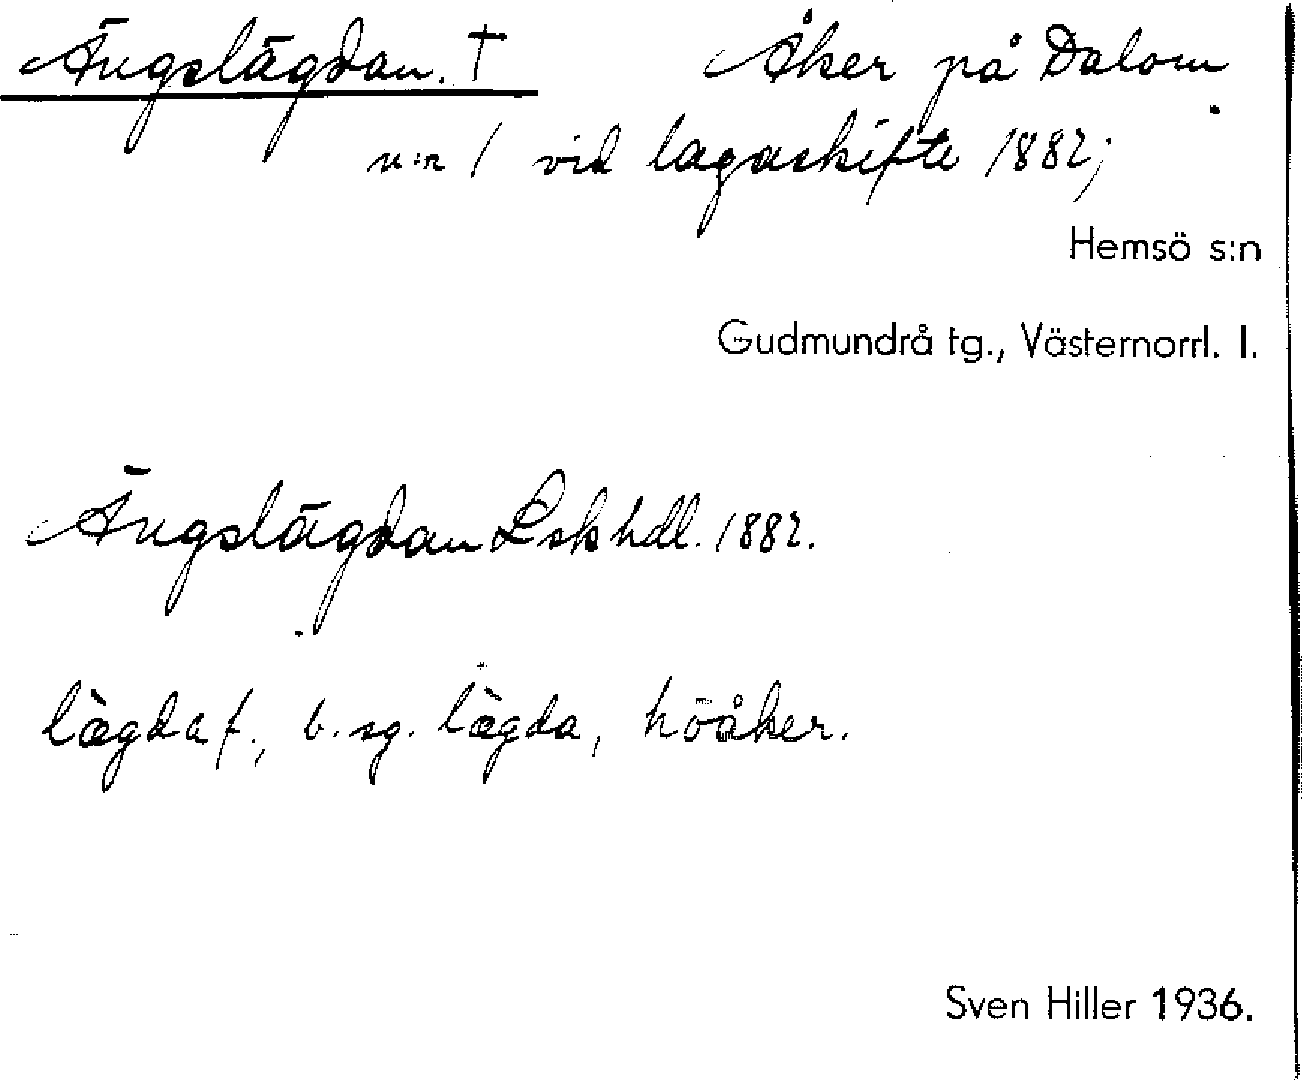 Ängslägdan. † Åker på Dalom
n:r 1 vid lagaskifte 1882;
Hemsö s:n
Gudmundrå tg., Västernorrl. l.
Ängslägdan Lskhdl. 1882.
lægda f., b. sg. lægda, höåker.
Sven Hiller 1936.